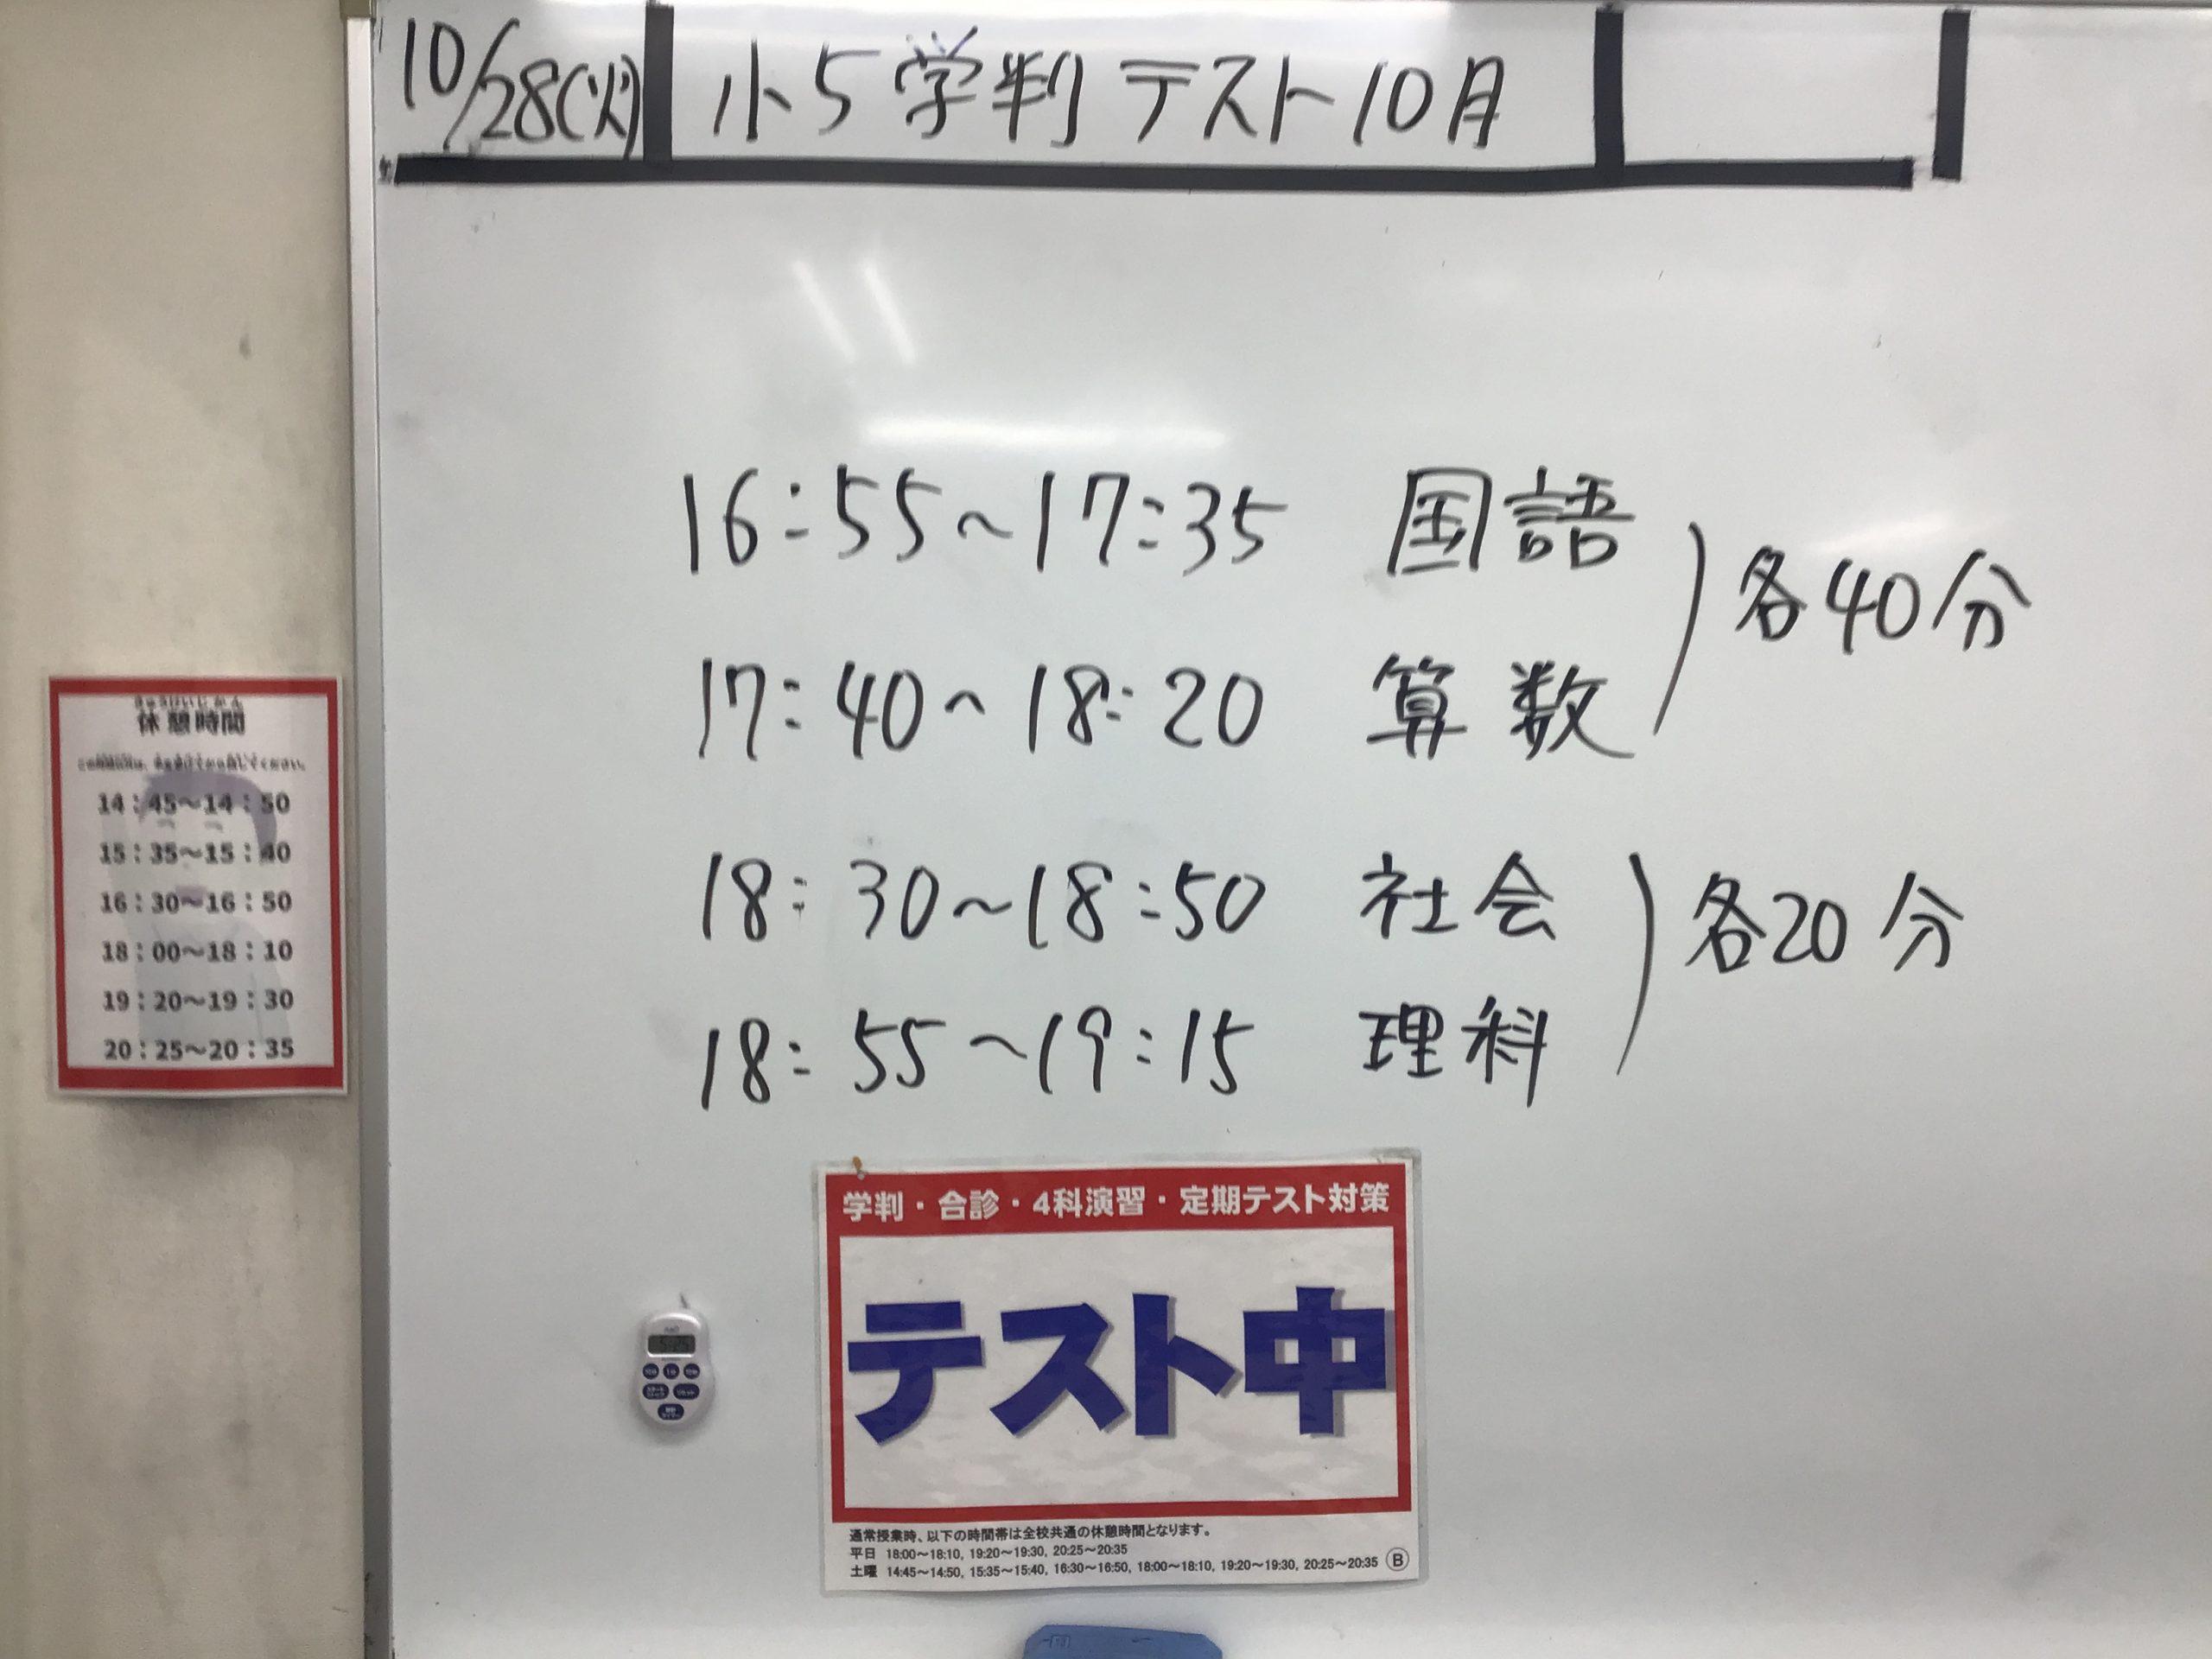 10/28(火) 小5学判テスト10月
16:55~17:35 国語
各40分
17:40~18:20 算数
18:30~18:50 社会
各20分
18:55~19:15 理科
きゅうけいじかん
休憩時間
14:45～14:50
15:35～15:40
16:30～16:50
18:00～18:10
19:20～19:30
20:25～20:35
学判・合診・4科演習・定期テスト対策
テスト中
通常授業時、以下の時間帯は全校共通の休憩時間となります。
平日 18:00～18:10, 19:20～19:30, 20:25～20:35
土曜 14:45～14:50, 15:35～15:40, 16:30～16:50, 18:00～18:10, 19:20～19:30, 20:25～20:35 Ⓑ